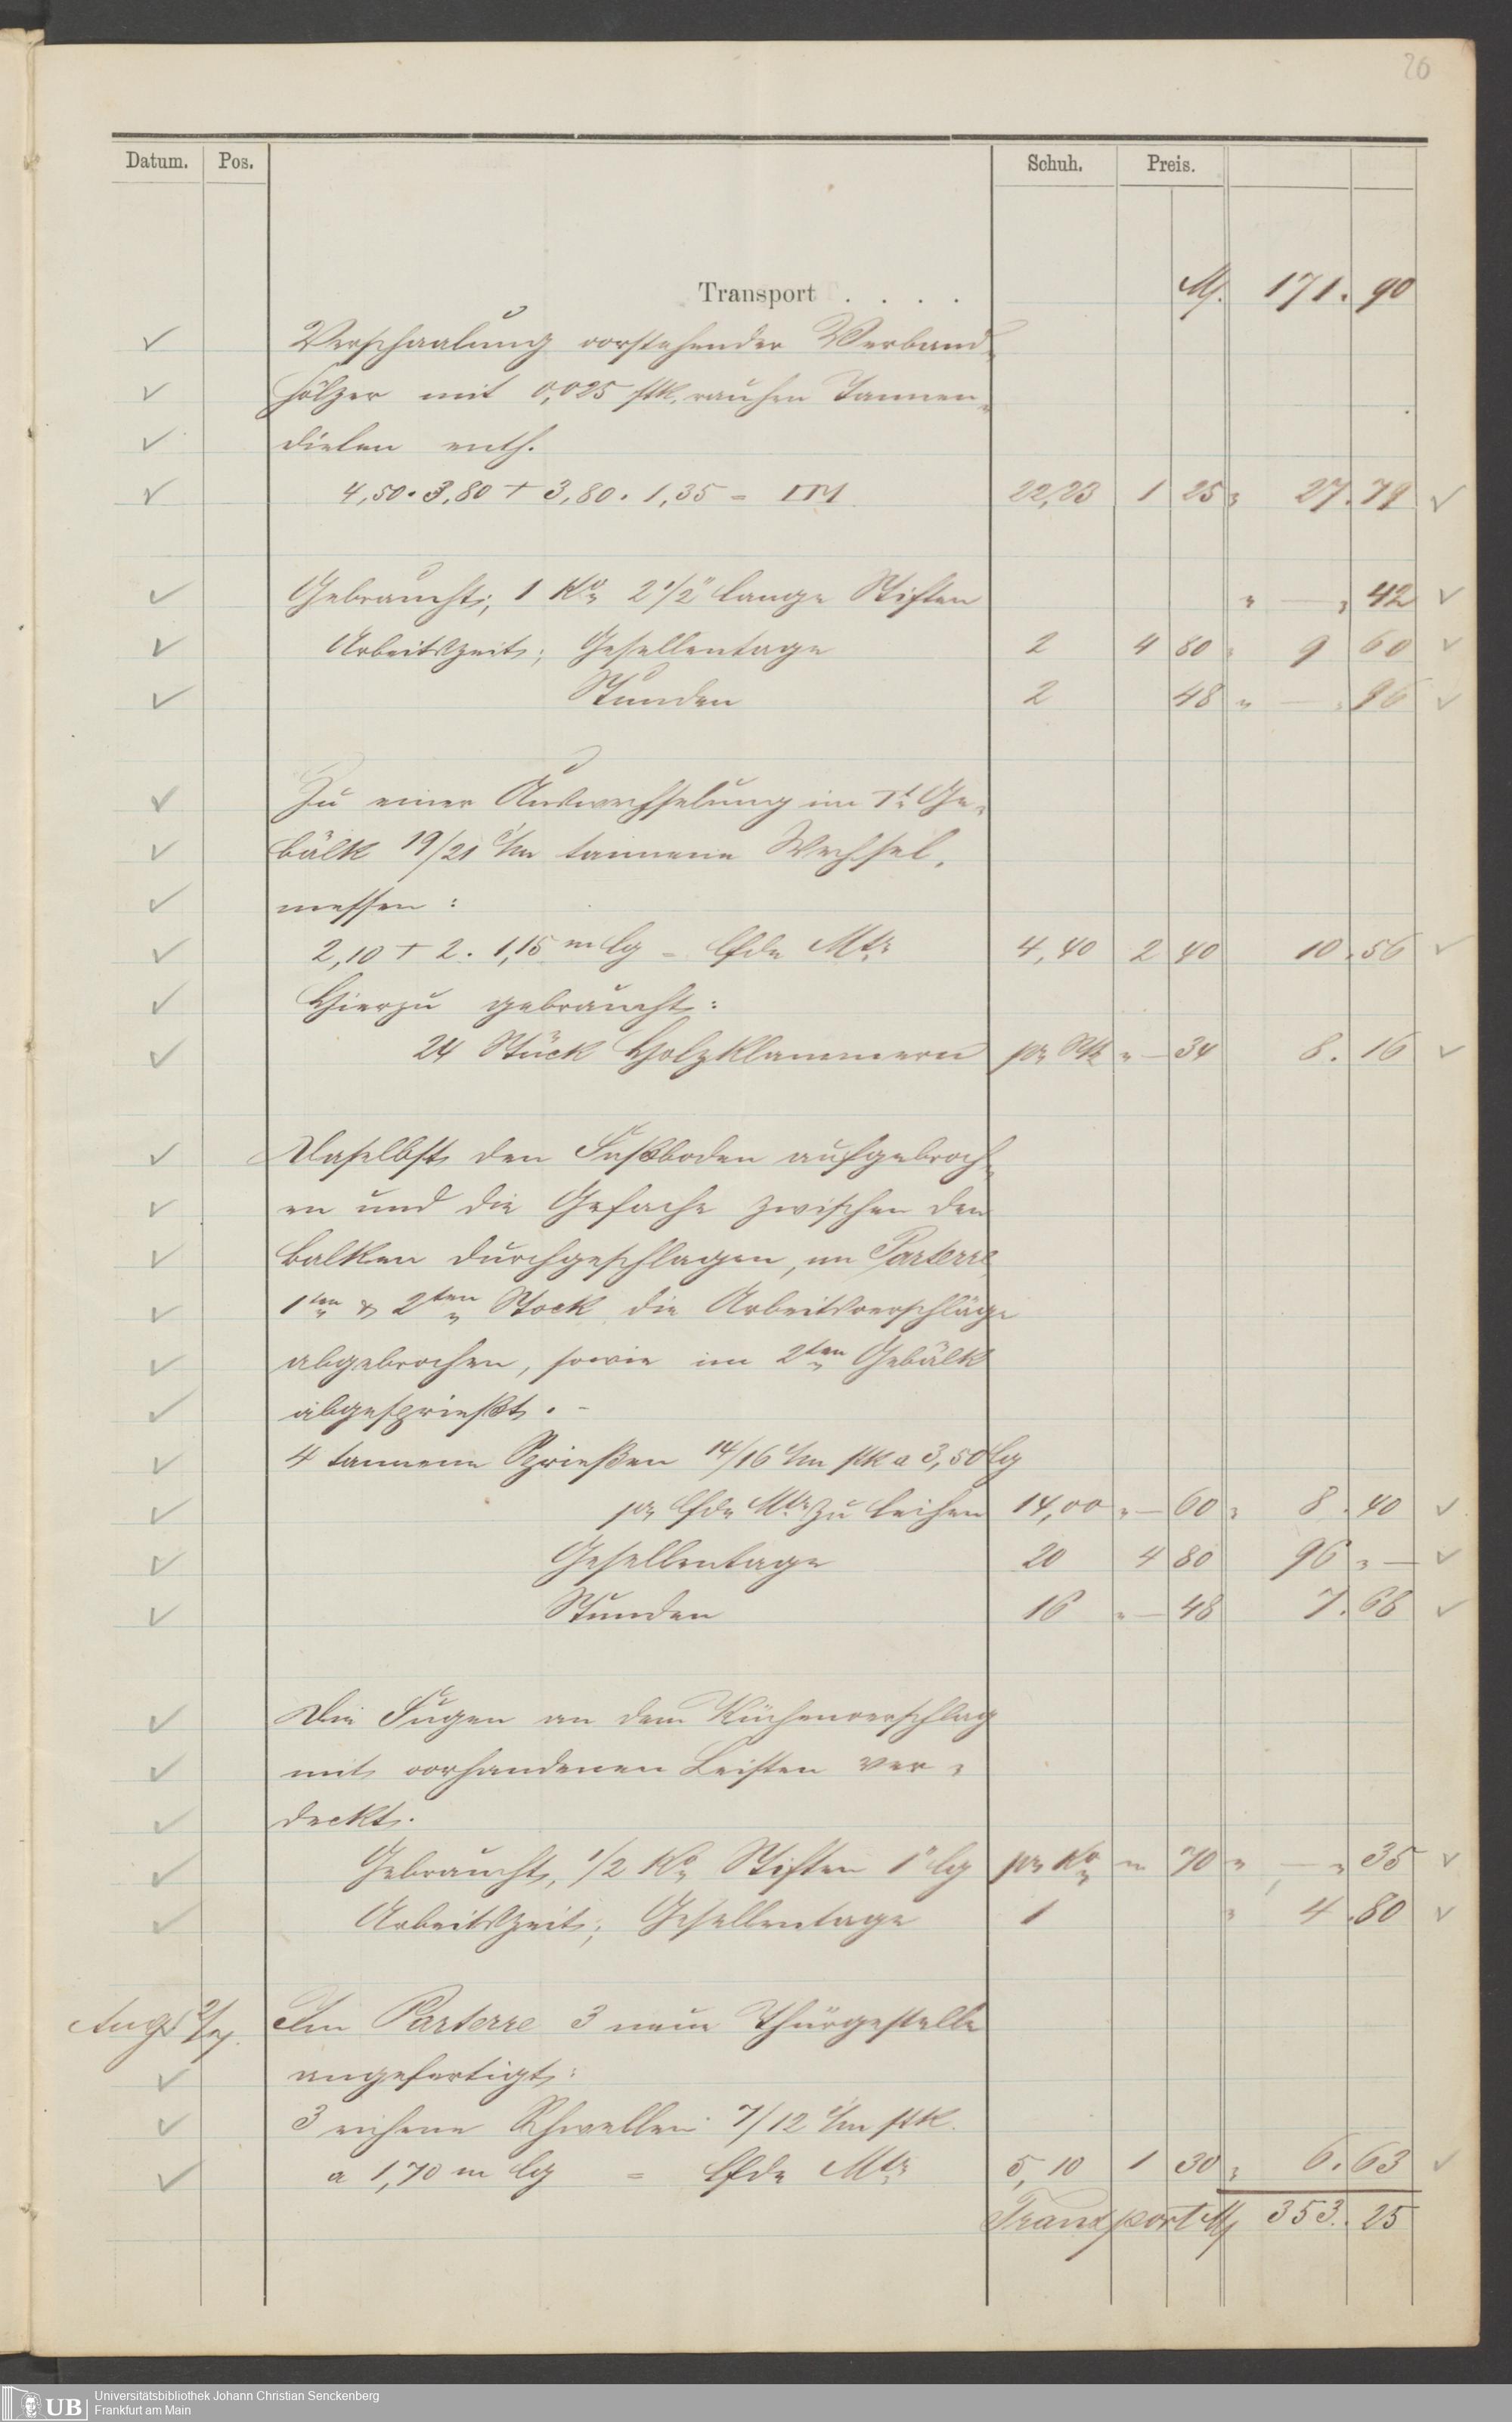 26
Datum. Pos. Schuh. Preis.
Transport . . . . M. 171. 90
Verschaalung vorstehender Verband-
hölzer mit 0,025 stk. rauhen Tannen-
dielen enth.
4,50 . 3,80 + 3,80 . 1,35 = □M 22,23 1 25 " 27. 79
Gebraucht; 1 Ko 2 1/2" lange Stiften " — " 42
Arbeitszeit; Gesellentage 2 4 80 " 9 60
Stunden 2 48 " — " 96
Zu einer Auswechselung im 1t Ge-
bälk 19/21 c/m tannene Wechsel,
messen :
2,10 + 2 . 1,15 m lg = lfde Mtr 4,40 2 40 10. 56
Hierzu gebraucht :
24 Stück Holzklammern pr Stk " — 34 8. 16
Daselbst den Fußboden aufgebroch-
en und die Gefache zwischen den
Balken durchgeschlagen, im Parterre
1ten & 2ten Stock die Arbeitsverschläge
abgebrochen, sowie im 2ten Gebälk
abgesprießt. -
4 tannene Sprießen 14/16 c/m stk a 3,50 lg
pr lfde Mtr zu leihen 14,00 " — 60 " 8. 40
Gesellentage 20 4 80 96 " —
Stunden 16 " — 48 7. 68
Die Fugen an dem Küchenverschlag
mit vorhandenen Leisten ver-
deckt.
Gebraucht, 1/2 Ko Stiften 1" lg pr Ko " 70 " — " 35
Arbeitszeit; Gesellentage 1 " 4. 80
Augst 2/7. Im Parterre 3 neue Thürgestelle
angefertigt:
3 eichene Schwellen 7/12 c/m stk.
a 1,70 m lg = lfde Mtr 5,10 1 30 " 6. 63
Transport M 353. 25
UB Universitätsbibliothek Johann Christian Senckenberg
Frankfurt am Main